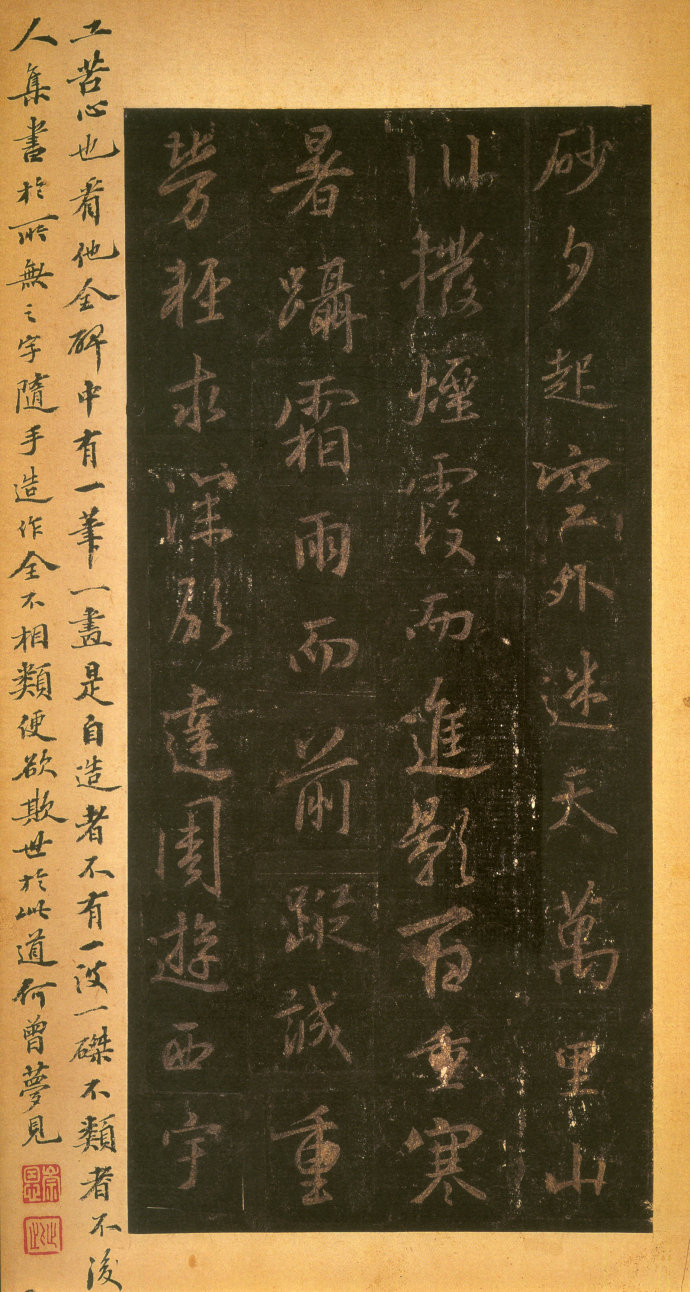 砂夕起空外迷天萬里山
川撥煙霞而進影百重寒
暑躡霜雨而前蹤誠重
勞輕求深願達周遊西宇
工苦心也看他全碑中有一筆一畫是自造者不有一波一磔不類者不後
人集書於所無之字隨手造作全不相類便欲欺世於此道何曾夢見
崇恩